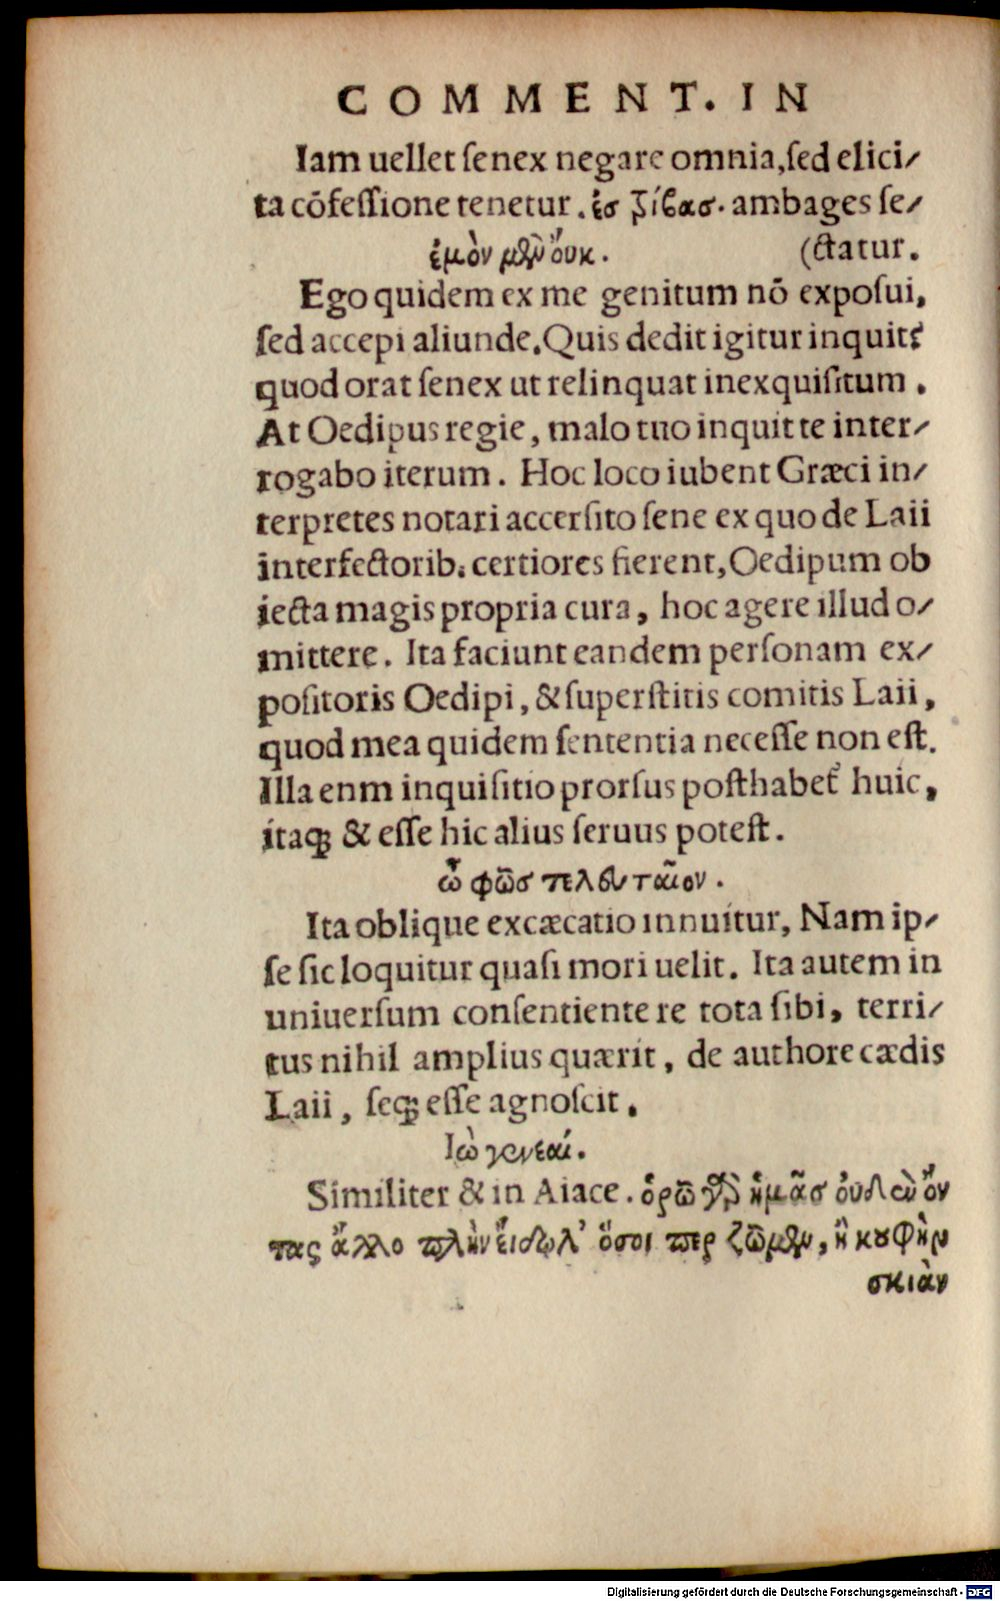 COMMENT. IN
Iam uellet ſenex negare omnia, ſed elici/
ta cõfeſſione tenetur. ἐσ τρίβασ. ambages ſe/
ἐμὸν μὲν οὔκ. (ctatur.
Ego quidem ex me genitum nõ expoſui,
ſed accepi aliunde. Quis dedit igitur inquit?
quod orat ſenex ut relinquat inexquiſitum.
At Oedipus regie, malo tuo inquit te inter/
rogabo iterum. Hoc loco iubent Græci in/
terpretes notari accerſito ſene ex quo de Laii
interfectorib. certiores fierent, Oedipum ob
iecta magis propria cura, hoc agere illud o/
mittere. Ita faciunt eandem perſonam ex/
poſitoris Oedipi, & ſuperſtitis comitis Laii,
quod mea quidem ſententia neceſſe non eſt.
Illa enm inquiſitio prorſus poſthabet᷑ huic,
itaqꝫ & eſſe hic alius ſeruus poteſt.
ὦ φῶσ τελευταῖον.
Ita oblique excæcatio innuitur, Nam ip/
ſe ſic loquitur quaſi mori uelit. Ita autem in
uniuerſum conſentiente re tota ſibi, terri/
tus nihil amplius quærit, de authore cædis
Laii, ſeqꝫ eſſe agnoſcit.
Ἰὼ γενεαί.
Similiter & in Aiace. ὁρῶ γὰρ ἡμᾶσ οὐδὲν ὄν
τας ἄλλο πλὴν εἴδωλ' ὅσοι περ ζῶμεν, ἢ κούφην
σκιὰν
Digitalisierung gefördert durch die Deutsche Forschungsgemeinschaft - DFG